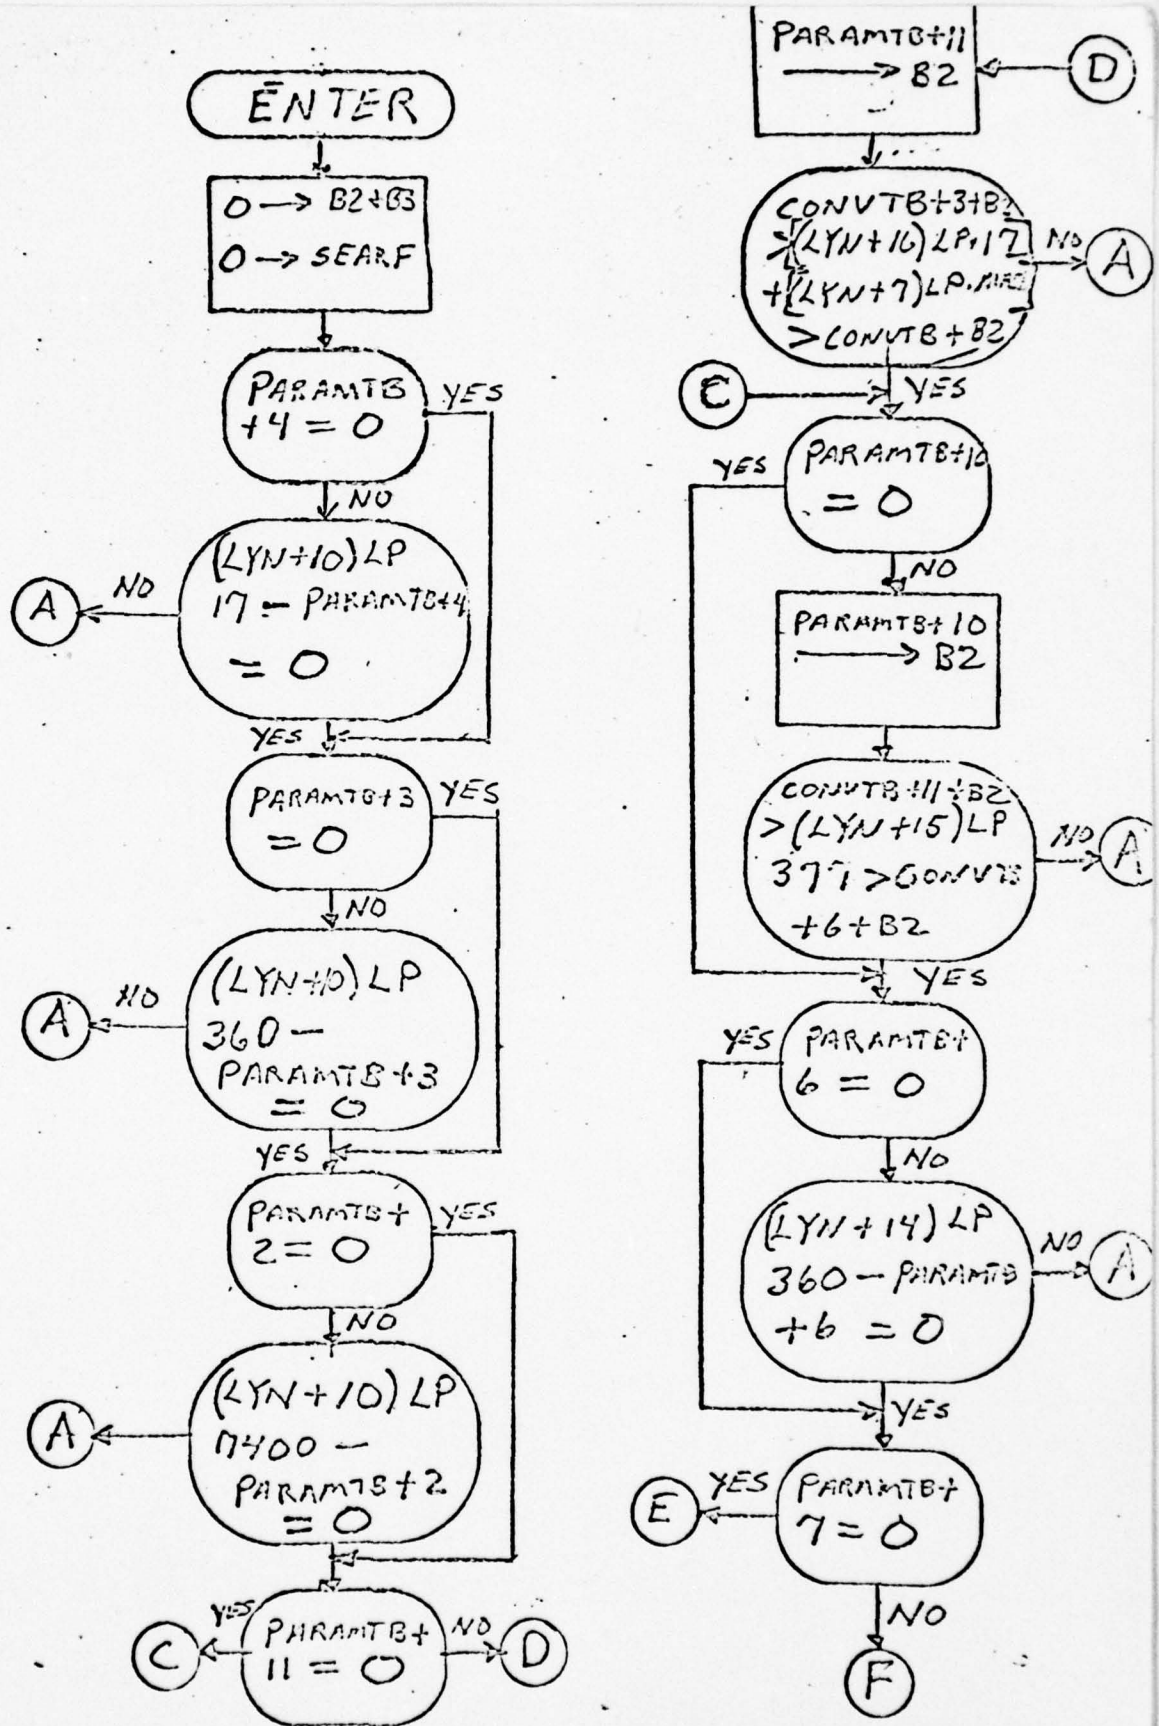 ENTER
0 → B2+B3
0 → SEARF
PARAMTB
+4 = 0
YES
NO
(LYN+10) LP
17 - PARAMTB+4
= 0
NO
A
YES
PARAMTB+3
= 0
YES
NO
(LYN+10) LP
360 -
PARAMTB+3
= 0
NO
A
YES
PARAMTB+
2 = 0
YES
NO
(LYN+10) LP
7400 -
PARAMTB+2
= 0
A
PARAMTB+
11 = 0
YES
C
NO
D
PARAMTB+11
→ B2
D
CONVTB+3+B2
>[(LYN+16) LP.17
+(LYN+7) LP.
> CONVTB+B2
NO
A
C
YES
PARAMTB+10
= 0
YES
NO
PARAMTB+10
→ B2
CONVTB+11+B2
> (LYN+15) LP
377 > CONVTB
+6+B2
NO
A
YES
PARAMTB+
6 = 0
YES
NO
(LYN+14) LP
360 - PARAMTB
+6 = 0
NO
A
YES
PARAMTB+
7 = 0
YES
E
NO
F